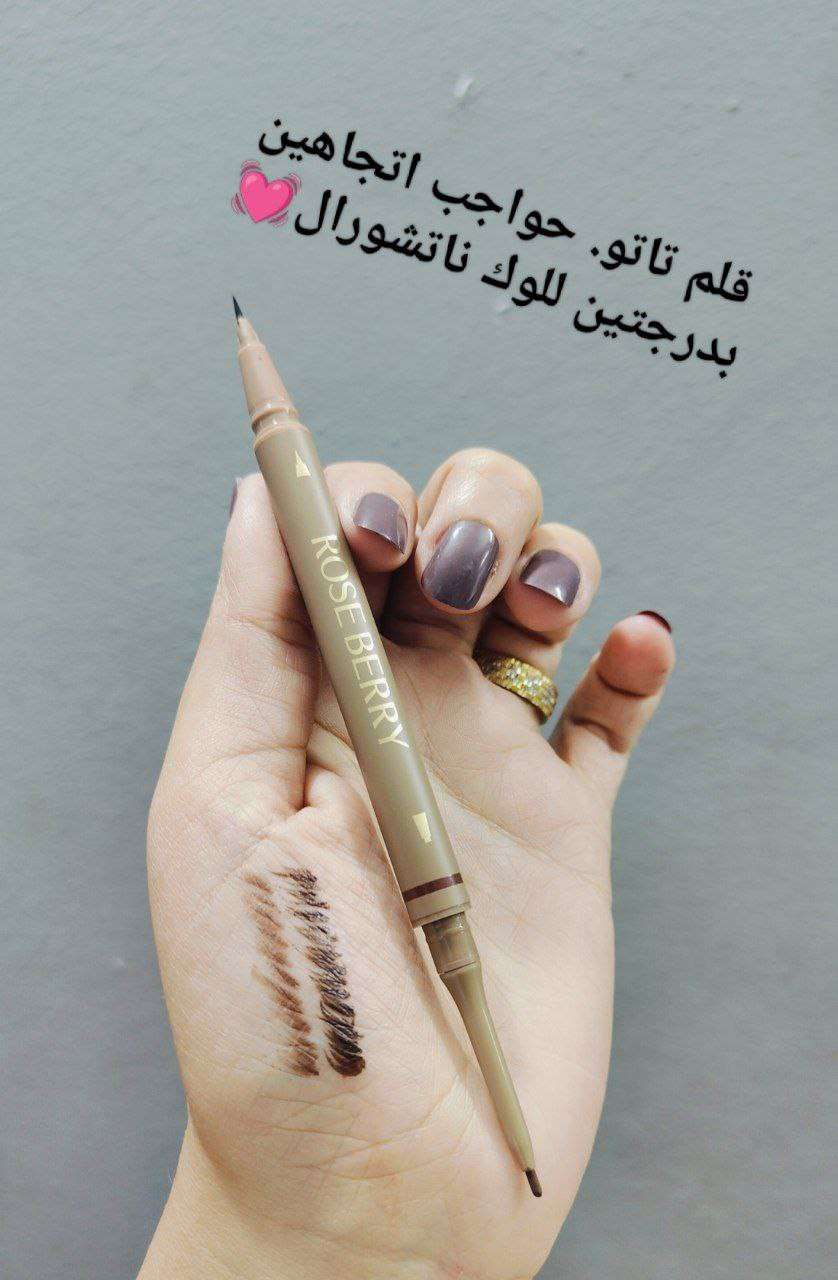 قلم تاتو. حواجب اتجاهين
بدرجتين للوك ناتشورال💓
ROSE BERRY